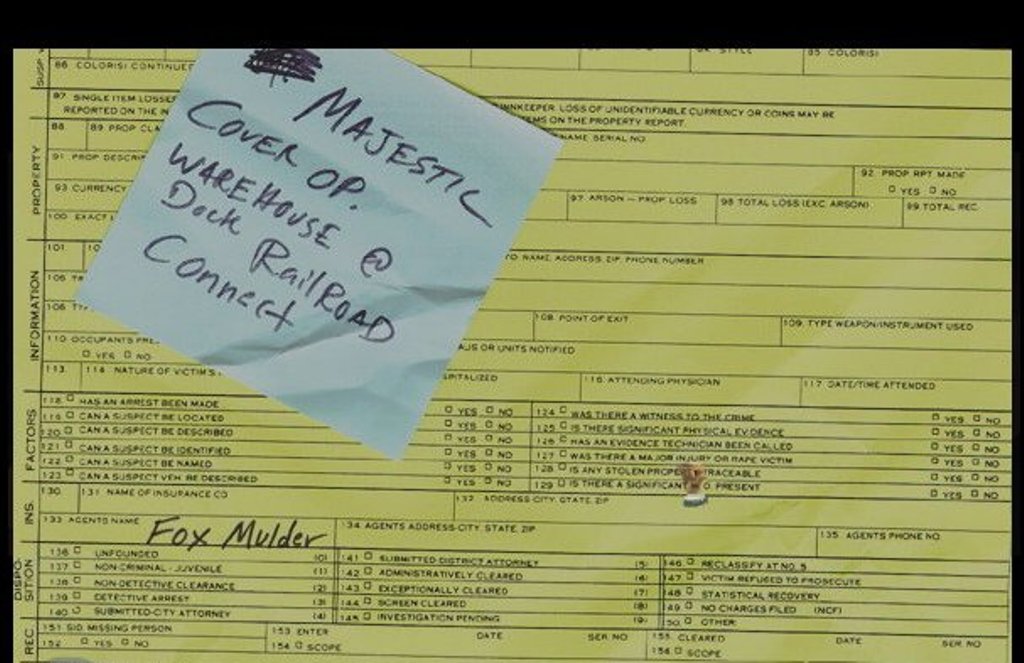 84 STYLE
85 COLOR(S)
SUSP V
86 COLOR(S) CONTINUED
87 SINGLE ITEM LOSSES
INNKEEPER, LOSS OF UNIDENTIFIABLE CURRENCY OR COINS MAY BE
REPORTED ON THE IN
EMS ON THE PROPERTY REPORT.
PROPERTY
88
89 PROP CLA
NAME SERIAL NO
91 PROP DESCRIP
92 PROP RPT MADE
YES NO
93 CURRENCY
97 ARSON — PROP LOSS
98 TOTAL LOSS (EXC ARSON)
99 TOTAL REC
100 EXACT L
MAJESTIC
COVER OP.
WAREHOUSE @
Dock RailROAD
Connect
INFORMATION
101
NAME, ADDRESS, ZIP, PHONE NUMBER
105 TR
106 TY
108 POINT OF EXIT
109 TYPE WEAPON/INSTRUMENT USED
110 OCCUPANTS PRE
YES NO
OR UNITS NOTIFIED
113
114 NATURE OF VICTIM'S
SPITALIZED
116 ATTENDING PHYSICIAN
117 DATE/TIME ATTENDED
FACTORS
118 HAS AN ARREST BEEN MADE YES NO
119 CAN A SUSPECT BE LOCATED YES NO
120 CAN A SUSPECT BE DESCRIBED YES NO
121 CAN A SUSPECT BE IDENTIFIED YES NO
122 CAN A SUSPECT BE NAMED YES NO
123 CAN A SUSPECT VEH BE DESCRIBED YES NO
124 WAS THERE A WITNESS TO THE CRIME YES NO
125 IS THERE SIGNIFICANT PHYSICAL EVIDENCE YES NO
126 HAS AN EVIDENCE TECHNICIAN BEEN CALLED YES NO
127 WAS THERE A MAJOR INJURY OR RAPE VICTIM YES NO
128 IS ANY STOLEN PROPE TRACEABLE YES NO
129 IS THERE A SIGNIFICANT PRESENT YES NO
INS.
130
131 NAME OF INSURANCE CO
132 ADDRESS-CITY, STATE, ZIP
133 AGENTS NAME
Fox Mulder
134 AGENTS ADDRESS-CITY, STATE, ZIP
135 AGENTS PHONE NO
DISPO-
SITION
136 UNFOUNDED (0)
137 NON-CRIMINAL - JUVENILE (1)
138 NON-DETECTIVE CLEARANCE (2)
139 DETECTIVE ARREST (3)
140 SUBMITTED-CITY ATTORNEY (4)
141 SUBMITTED DISTRICT ATTORNEY (5)
142 ADMINISTRATIVELY CLEARED (6)
143 EXCEPTIONALLY CLEARED (7)
144 SCREEN CLEARED (8)
145 INVESTIGATION PENDING (9)
146 RECLASSIFY AT NO. 5
147 VICTIM REFUSED TO PROSECUTE
148 STATISTICAL RECOVERY
149 NO CHARGES FILED (NCF)
150 OTHER
REC
151 SID MISSING PERSON
152 YES NO
153 ENTER DATE SER NO
154 SCOPE
155 CLEARED DATE SER NO
156 SCOPE